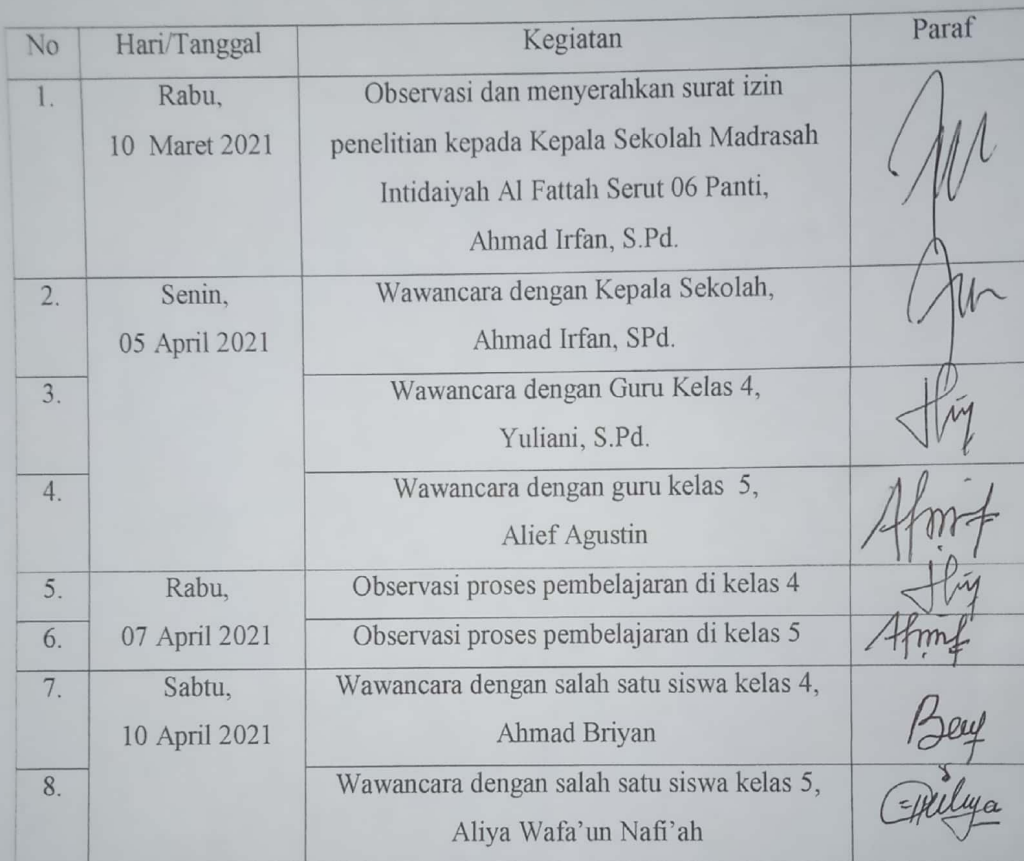 No Hari/Tanggal Kegiatan Paraf
1. Rabu, Observasi dan menyerahkan surat izin
10 Maret 2021 penelitian kepada Kepala Sekolah Madrasah
Intidaiyah Al Fattah Serut 06 Panti,
Ahmad Irfan, S.Pd.
2. Senin, Wawancara dengan Kepala Sekolah,
05 April 2021 Ahmad Irfan, SPd.
3. Wawancara dengan Guru Kelas 4,
Yuliani, S.Pd.
4. Wawancara dengan guru kelas 5,
Alief Agustin
5. Rabu, Observasi proses pembelajaran di kelas 4
6. 07 April 2021 Observasi proses pembelajaran di kelas 5
7. Sabtu, Wawancara dengan salah satu siswa kelas 4,
10 April 2021 Ahmad Briyan
8. Wawancara dengan salah satu siswa kelas 5,
Aliya Wafa'un Nafi'ah